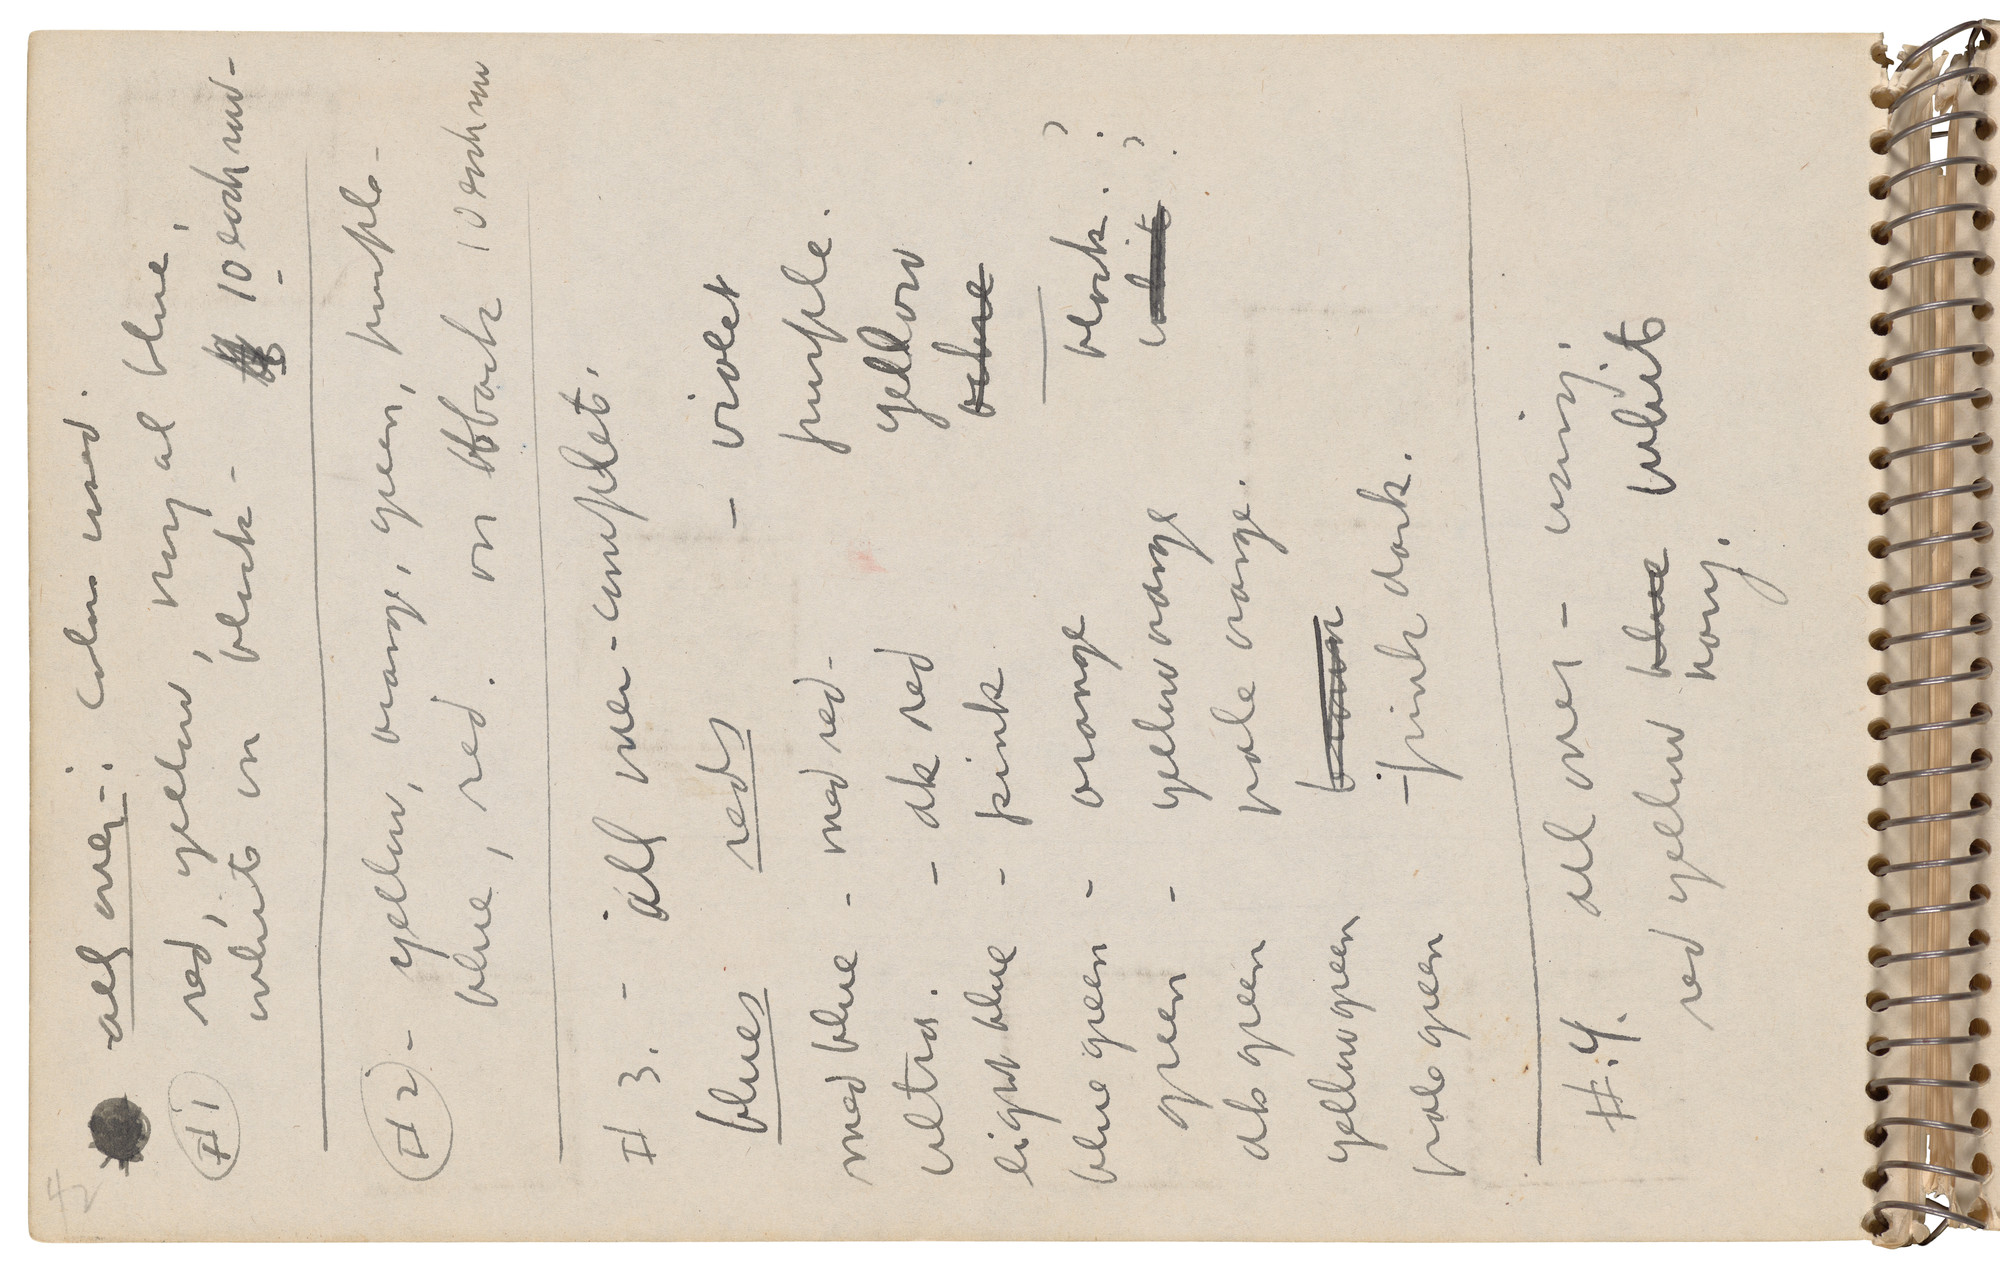 all over: Colors used.
#1 red, yellow, navy al blue,
white on black - 10 each row -
#2 - yellow, orange, green, purple -
blue, red. on black 10 each row
# 3. - all over - complete.
blues reds - violet
med blue - med red - purple.
ultra. - dk red yellow
light blue - pink
blue green - orange black . ?
green - yellow orange white . ?
dk green pale orange.
yellow green brown
pale green - pink dark.
#.4. all over - using.
red yellow blue white
navy.